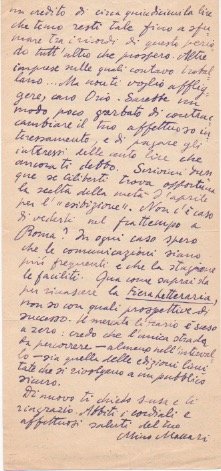 un credito di circa quindicimila lire
che temo resti tale fino a sfu-
mare tra i ricordi di questo perio-
do tutt'altro che prospero. Altre
imprese sulle quali contavo trabal-
lano... Ma non ti voglio afflig-
gere, caro Orio. Sarebbe un
modo poco garbato di contrac-
cambiare il tuo affettuoso in-
teressamento, e di pagare gli
interessi delle altre lire che
ancora ti debbo. Scrivimi dun-
que se Ciliberti trova opportuna
la scelta della metà d'aprile
per l'"esibizione". Non c'è caso
di vederti nel frattempo a
Roma? In ogni caso spero
che le comunicazioni siano
più frequenti e che la stagione
le faciliti. Qua come saprai sta
per rinascere la Fiera Letteraria,
non so con quali prospettive di
successo. Il mercato librario è sceso
a zero. Credo che l'unica strada
da percorrere - almeno nell'interval-
lo - sia quella delle edizioni limi-
tate che si rivolgono a un pubblico
sicuro.
Di nuovo ti chiedo scusa e ti
ringrazio. Abbiti i cordiali e
affettuosi saluti del tuo
Mino Maccari